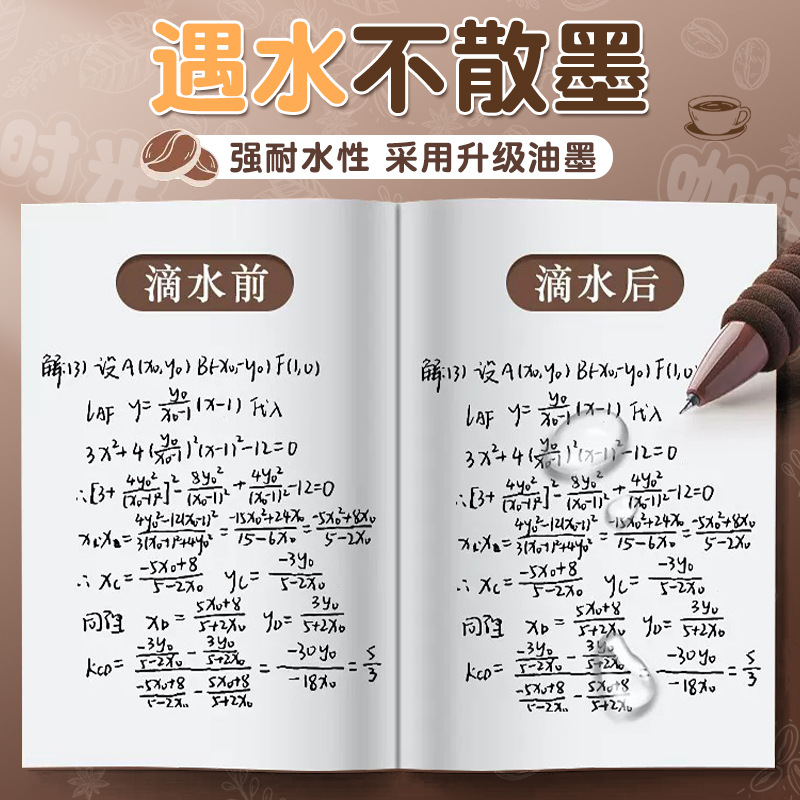 遇水不散墨
强耐水性 采用升级油墨
时光
咖啡
滴水前
解:(3) 设A(x₀,y₀) B(-x₀,-y₀) F(1,0)
lAF y=y₀/(x₀-1)(x-1) 代入
3x²+4(y₀/(x₀-1))²(x-1)²-12=0
∴[3+4y₀²/(x₀-1)²]-8y₀²/(x₀-1)²+4y₀²/(x₀-1)²-12=0
=(4y₀²-12(x₀-1)²)/(3(x₀-1)²+4y₀²)=(-15x₀²+24x₀)/(15-6x₀)=(-5x₀²+8x₀)/(5-2x₀)
∴ xC=(-5x₀+8)/(5-2x₀) yC=-3y₀/(5-2x₀)
同理 xD=(5x₀+8)/(5+2x₀) yD=3y₀/(5+2x₀)
kCD=(-3y₀/(5-2x₀)-3y₀/(5+2x₀))/((-5x₀+8)/(5-2x₀)-(5x₀+8)/(5+2x₀))=-30y₀/-18x₀=5/3
滴水后
解:(3) 设A(x₀,y₀) B(-x₀,-y₀) F(1,0
lAF y=y₀/(x₀-1)(x-1) 代入
3x²+4(y₀/(x₀-1))²(x-1)²-12=0
∴[3+4y₀²/(x₀-1)²]-8y₀²/(x₀-1)²+4y₀²/(x₀-1)²-12=0
=(4y₀²-12(x₀-1)²)/(3(x₀-1)²+4y₀²)=(-15x₀²+24x₀)/(15-6x₀)=(-5x₀²+8x₀)/(5-2x₀)
∴ xC=(-5x₀+8)/(5-2x₀) yC=-3y₀/(5-2x₀)
同理 xD=(5x₀+8)/(5+2x₀) yD=3y₀/(5+2x₀)
kCD=(-3y₀/(5-2x₀)-3y₀/(5+2x₀))/((-5x₀+8)/(5-2x₀)-(5x₀+8)/(5+2x₀))=-30y₀/-18x₀=5/3